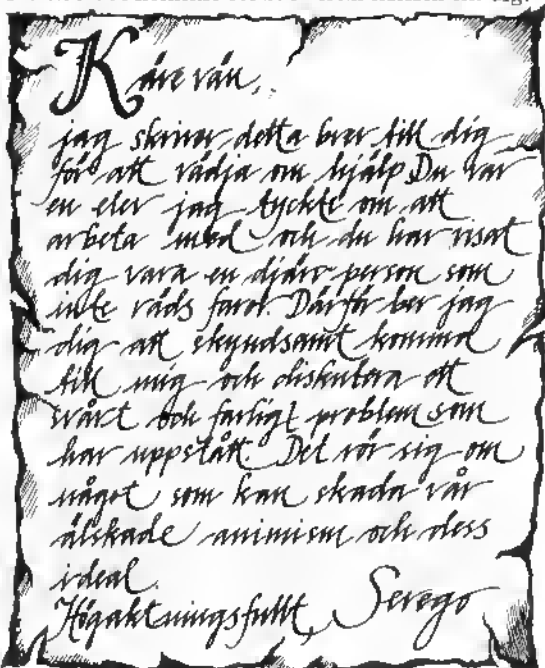 Käre vän,
jag skriver detta brev till dig
för att vädja om hjälp. Du var
en elev jag tyckte om att
arbeta med och du har visat
dig vara en djärv person som
inte räds faror. Därför ber jag
dig att skyndsamt komma
till mig och diskutera ett
svårt och farligt problem som
har uppstått. Det rör sig om
något som kan skada vår
älskade animism och dess
ideal.
Högaktningsfullt, Serego